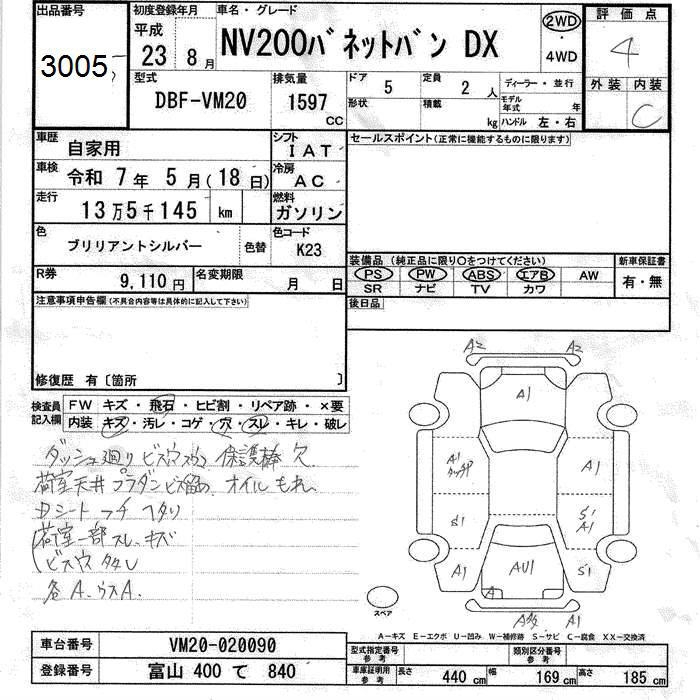 出品番号
3005
初度登録年月
平成
23 8 月
車名・グレード
NV200バネットバン DX
2WD
・
4WD
評価点
4
外装 内装
C
型式
DBF-VM20
排気量
1597
CC
ドア
5
定員
2 人
形状
積載
kg
ディーラー・並行
モデル年式 年
ハンドル 左・右
車歴
自家用
シフト
IAT
セールスポイント(正常に機能するものに限ります)
車検
令和 7年 5月(18日)
冷房
AC
走行
13万5千145 km
燃料
ガソリン
色
ブリリアントシルバー
色替
色コード
K23
装備品 (純正品に限り○をつけてください)
PS PW ABS エアB AW
SR ナビ TV カワ
新車保証書
有・無
R券
9,110円
名変期限
月 日
後日品
注意事項申告欄(不具合内容等は具体的に記入して下さい)
修復歴 有〔箇所 〕
検査員記入欄
FW キズ・飛石・ヒビ割・リペア跡・×要
内装 キズ・汚レ・コゲ・穴・スレ・キレ・破レ
ダッシュ廻り ビス穴 保護棒 欠
荷室天井 プラダンビス留め オイルもれ
Dシート フチ ヘタリ
荷室一部 スレ、キズ
ビス穴 タタム
各A、ウスA
A2 A2
A1
A1
A1
S1
S1
A1
A1
AU1
S1
A
A1
スペア
A-キズ E-エクボ U-凹み W-補修跡 S-サビ C-腐食 XX-交換済
車台番号
VM20-020090
登録番号
富山 400 て 840
型式指定番号
参考
類別区分番号
参考
車庫証明用
参考
長さ
440 cm
幅
169 cm
高さ
185 cm